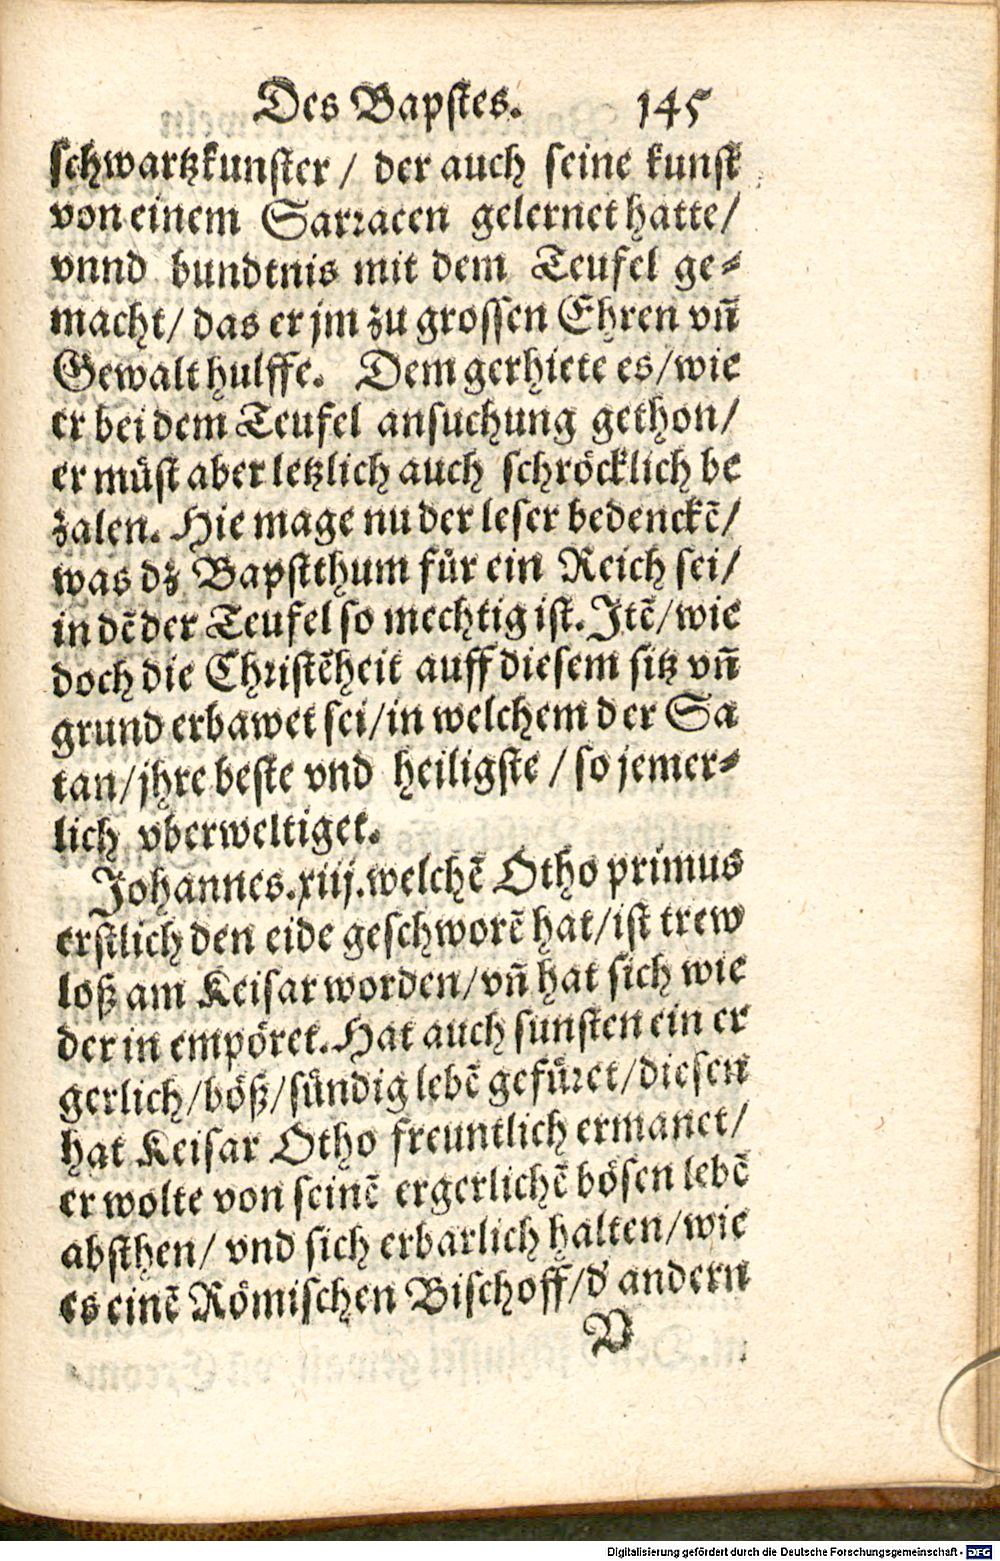 Des Bapstes. 145
schwartzkunster / der auch seine kunst
von einem Sarracen gelernet hatte/
vnnd bundtnis mit dem Teufel ge-
macht/ das er jm zu grossen Ehren vñ
Gewalt hulffe. Dem gerhiete es/wie
er bei dem Teufel ansuchung gethon/
er müst aber letzlich auch schröcklich be
zalen. Hie mage nu der leser bedenckẽ/
was dz Bapstthum für ein Reich sei/
in dẽ der Teufel so mechtig ist. Itẽ/wie
doch die Christẽheit auff diesem sitz vñ
grund erbawet sei/in welchem der Sa
tan/jhre beste vnd heiligste / so jemer-
lich vberweltiget.
Johannes.xiij.welchẽ Otho primus
erstlich den eide geschworẽ hat/ist trew
loß am Keisar worden/vñ hat sich wie
der in empöret. Hat auch sunsten ein er
gerlich/böß/sündig lebẽ gefüret/diesen
hat Keisar Otho freuntlich ermanet/
er wolte von seinẽ ergerlichẽ bösen lebẽ
absthen/ vnd sich erbarlich halten/wie
es einẽ Römischen Bischoff/d' andern
V
Digitalisierung gefördert durch die Deutsche Forschungsgemeinschaft - DFG